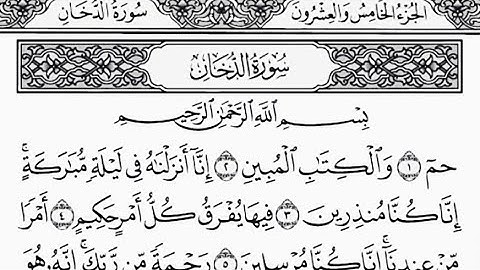 الجزء الخامس والعشرون سورة الدخان
سُورَةُ الدُّخَانِ
بِسْمِ اللَّهِ الرَّحْمَٰنِ الرَّحِيمِ
حمٓ ١ وَالْكِتَابِ الْمُبِينِ ٢ إِنَّآ أَنزَلْنَاهُ فِى لَيْلَةٍ مُّبَارَكَةٍ ۚ
إِنَّا كُنَّا مُنذِرِينَ ٣ فِيهَا يُفْرَقُ كُلُّ أَمْرٍ حَكِيمٍ ٤ أَمْرًا
مِّنْ عِندِنَآ ۚ إِنَّا كُنَّا مُرْسِلِينَ ٥ رَحْمَةً مِّن رَّبِّكَ ۚ إِنَّهُ هُوَ